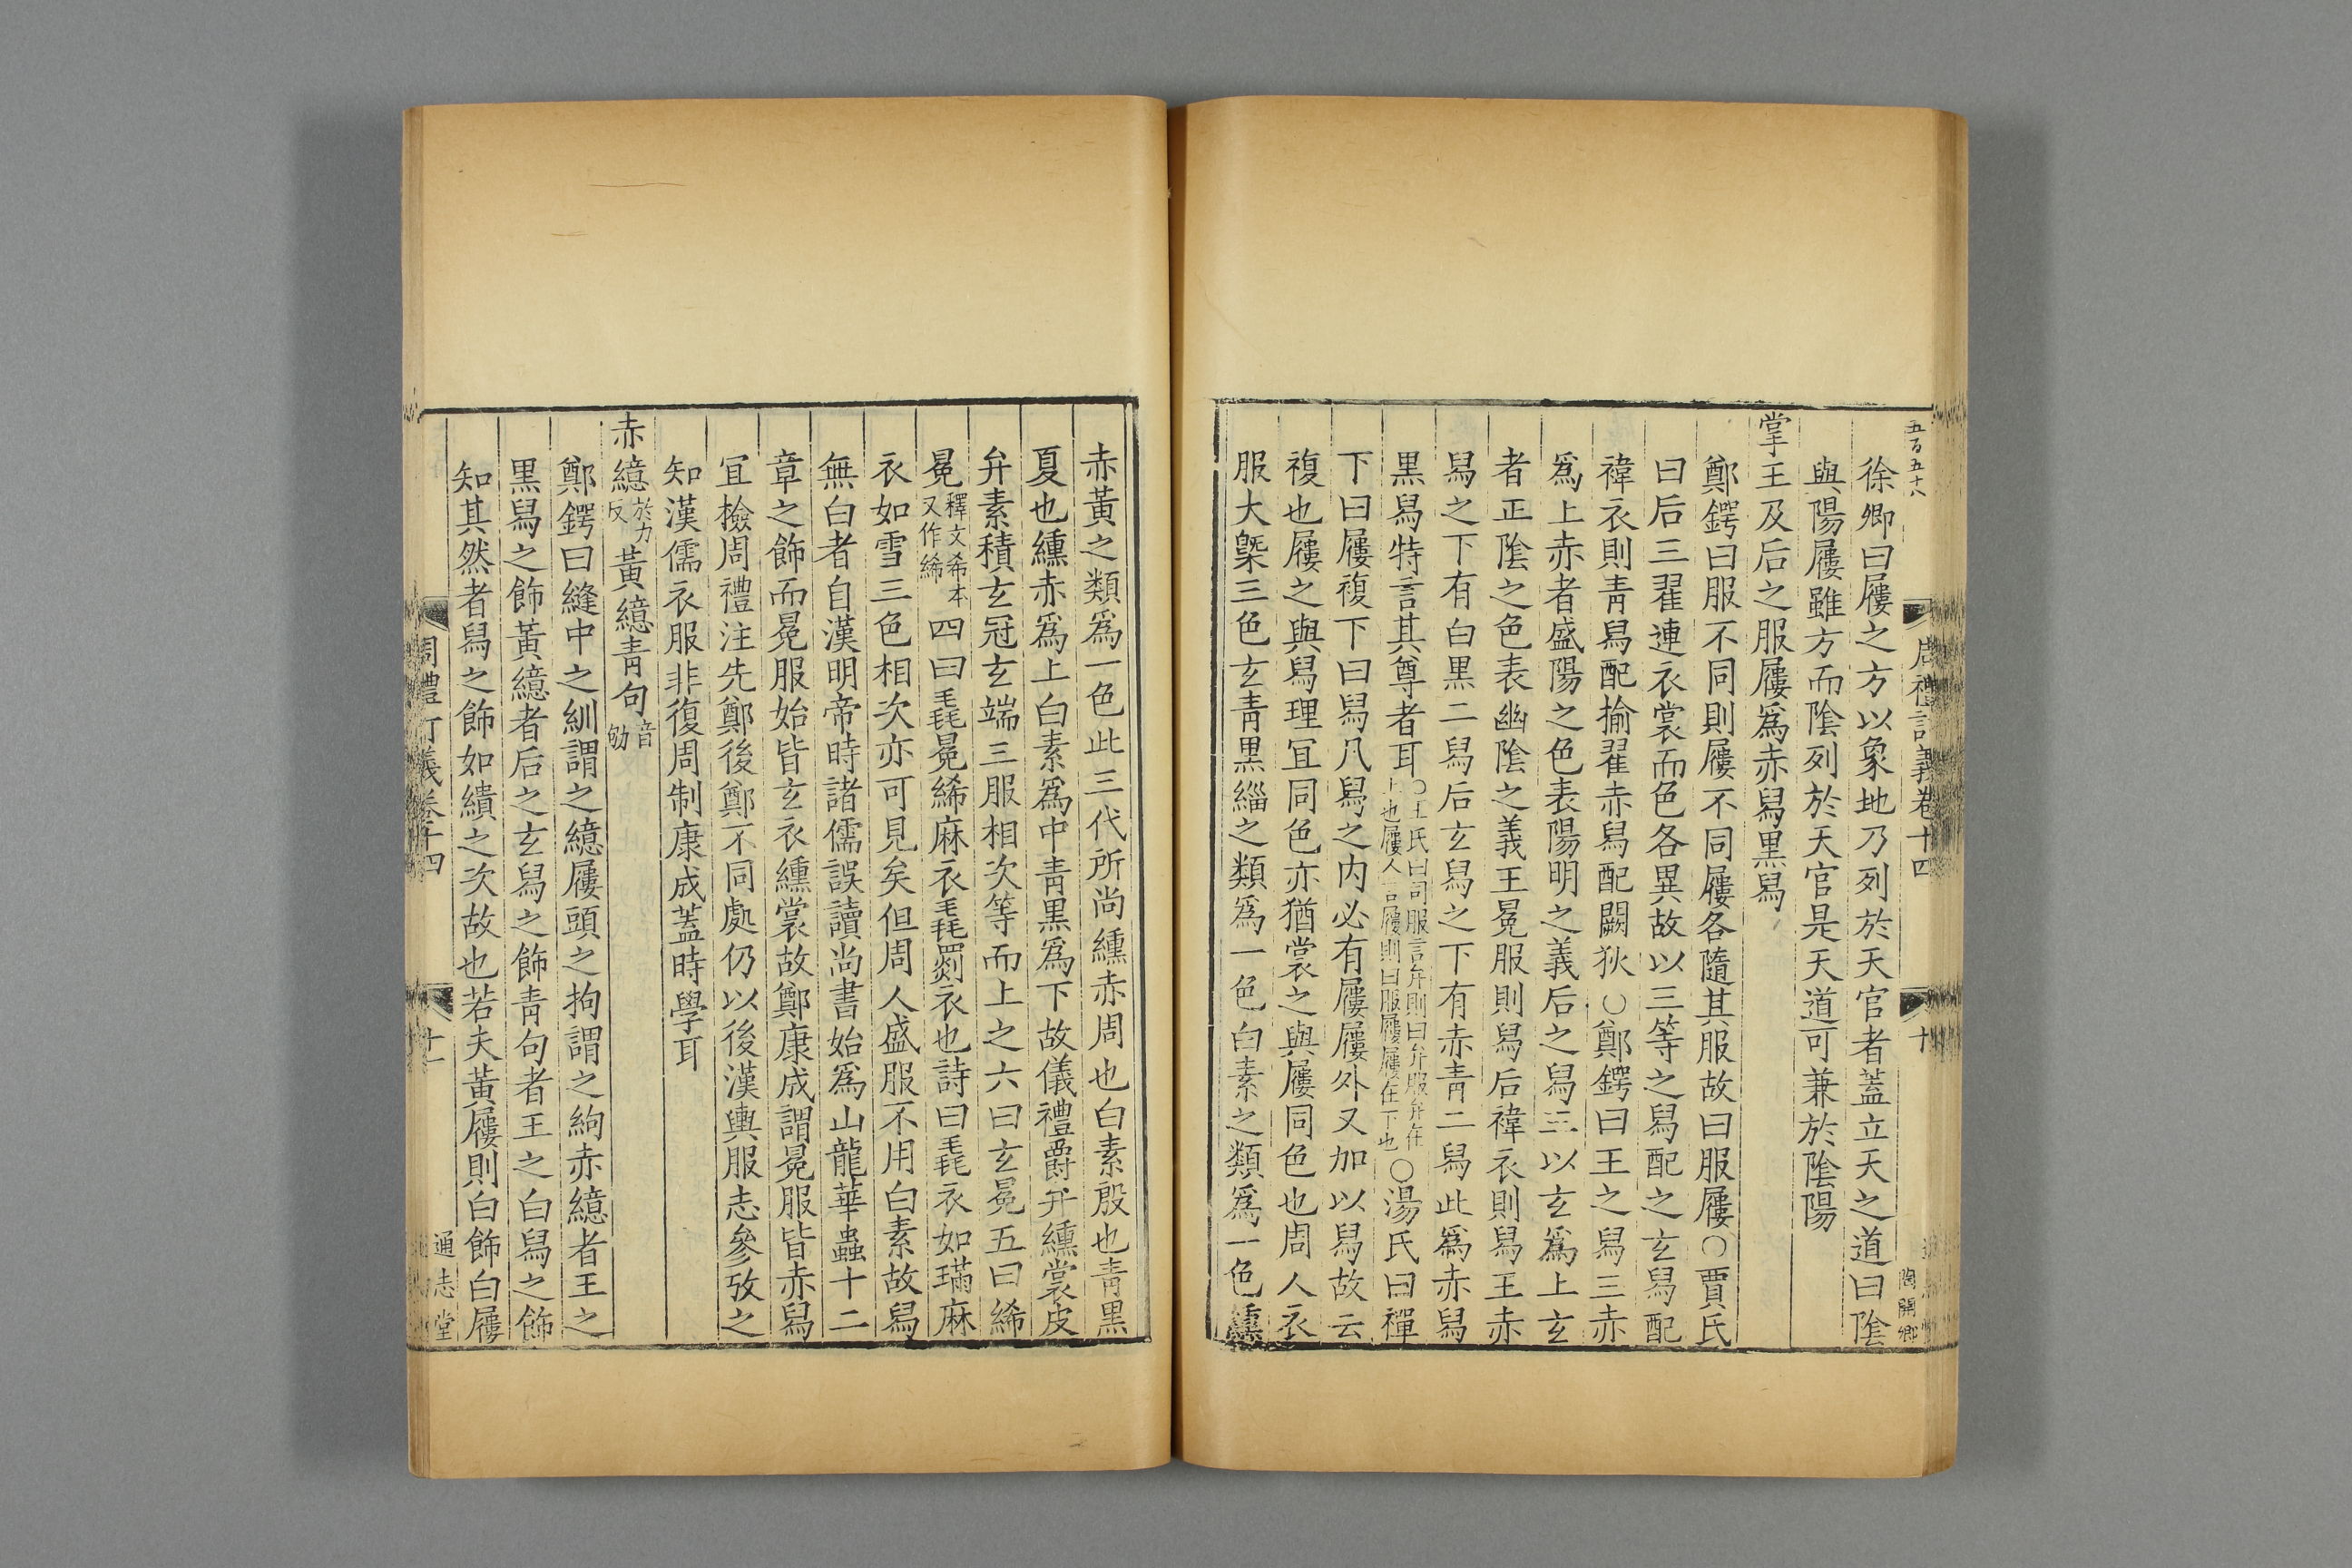 五百五十八
周禮訂義卷十四
十
陶開鄉
徐卿曰屨之方以象地乃列於天官者蓋立天之道曰陰
與陽屨雖方而陰列於天官是天道可兼於陰陽
掌王及后之服屨爲赤舄黑舄
鄭鍔曰服不同則屨不同屨各隨其服故曰服屨○賈氏
曰后三翟連衣裳而色各異故以三等之舄配之玄舄配
褘衣則靑舄配揄翟赤舄配闕狄○鄭鍔曰王之舄三赤
爲上赤者盛陽之色表陽明之義后之舄三以玄爲上玄
者正陰之色表幽陰之義王冕服則舄后褘衣則舄王赤
舄之下有白黑二舄后玄舄之下有赤靑二舄此爲赤舄
黑舄特言其尊者耳○王氏曰司服言弁則曰弁服弁在上也屨人言屨則曰服屨屨在下也○湯氏曰禪
下曰屨複下曰舄凡舄之内必有屨屨外又加以舄故云
複也屨之與舄理宜同色亦猶裳之與屨同色也周人衣
服大槩三色玄靑黑緇之類爲一色白素之類爲一色纁
赤黃之類爲一色此三代所尚纁赤周也白素殷也靑黑
夏也纁赤爲上白素爲中靑黑爲下故儀禮爵弁纁裳皮
弁素積玄冠玄端三服相次等而上之六曰玄冕五曰絺
冕釋文希本又作絺四曰毳冕絺麻衣毳罽衣也詩曰毳衣如璊麻
衣如雪三色相次亦可見矣但周人盛服不用白素故舄
無白者自漢明帝時諸儒誤讀尚書始爲山龍華蟲十二
章之飾而冕服始皆玄衣纁裳故鄭康成謂冕服皆赤舄
宜撿周禮注先鄭後鄭不同處仍以後漢輿服志參攷之
知漢儒衣服非復周制康成蓋時學耳
赤繶於力反黃繶靑句音劬
鄭鍔曰縫中之紃謂之繶屨頭之拘謂之絇赤繶者王之
黑舄之飾黃繶者后之玄舄之飾靑句者王之白舄之飾
知其然者舄之飾如繢之次故也若夫黃屨則白飾白屨
周禮訂義卷十四
十一
通志堂